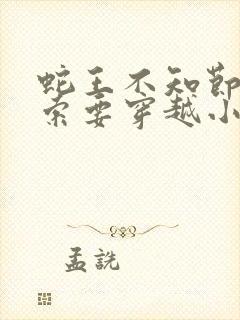 蛇王不知节
索要穿越小
孟詵